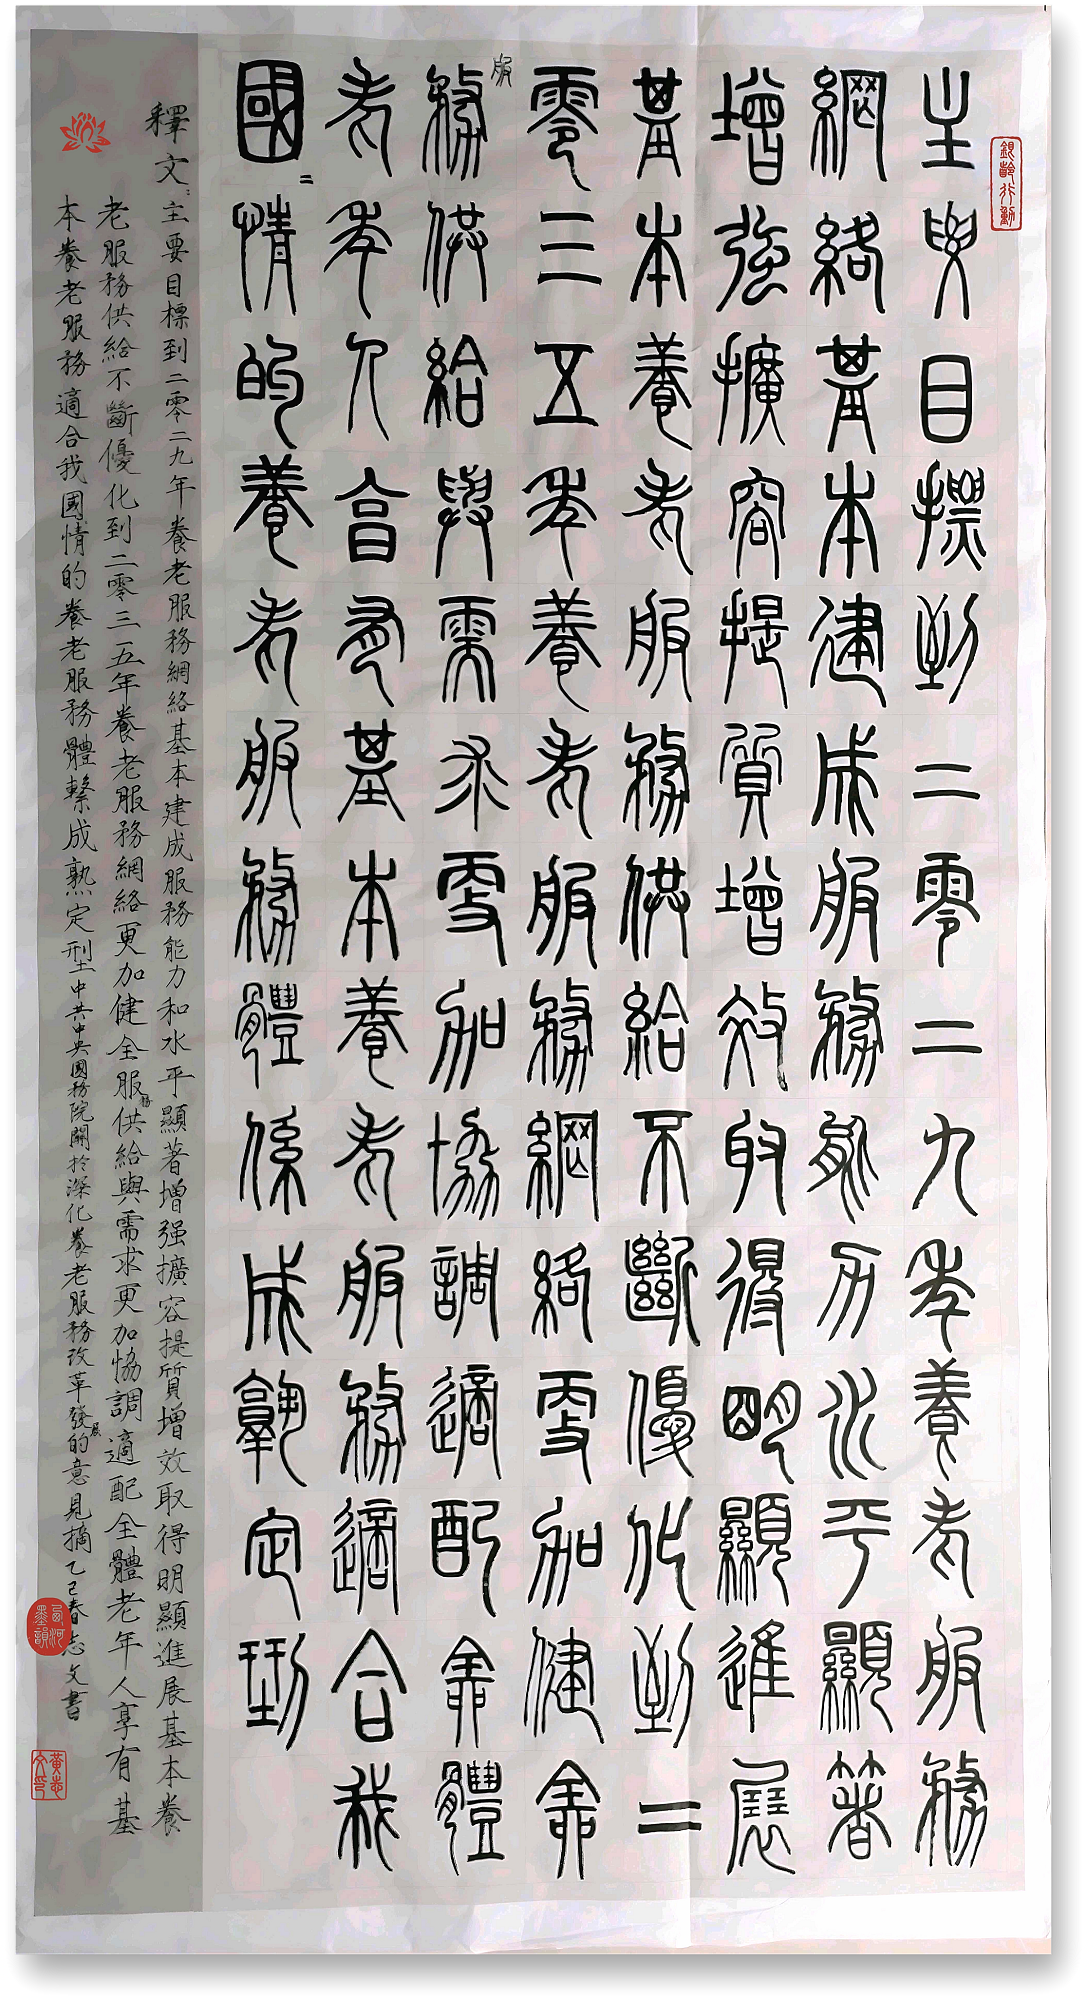 銀齡行動
主要目標到二零二九年養老服務
網絡基本建成服務能力水平顯著
增強擴容提質增效取得明顯進展
基本養老服務供給不斷優化到二
零三五年養老服務網絡更加健全
服
務供給與需求更加協調適配全體
老年人享有基本養老服務適合我
國情的養老服務體係成熟定型
釋文：主要目標到二零二九年養老服務網絡基本建成服務能力和水平顯著增强擴容提質增效取得明顯進展基本養
老服務供給不斷優化到二零三五年養老服務網絡更加健全服務供給與需求更加恊調適配全體老年人享有基
本養老服務適合我國情的養老服務體繫成熟定型中共中央國務院關於深化養老服務改革發展的意見摘乙巳春志文書
黃志文印